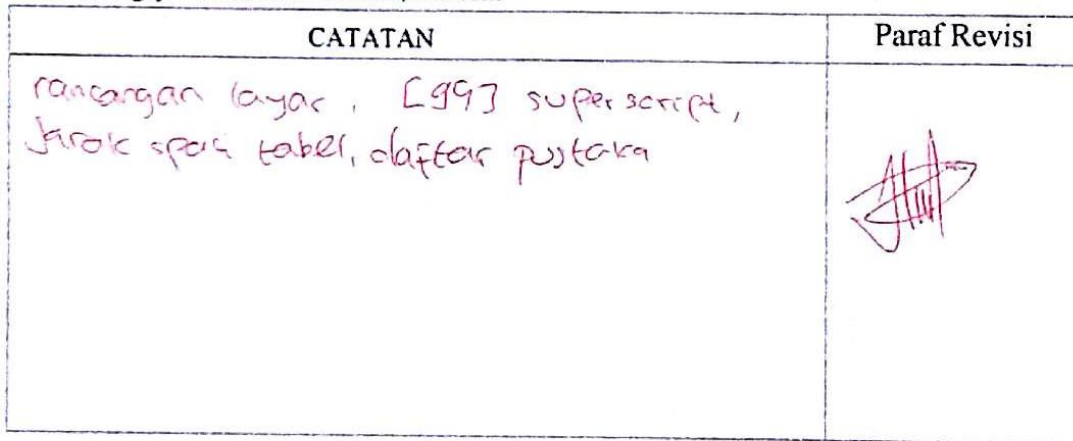 CATATAN
Paraf Revisi
rancangan layar, [99] superscript,
Jarak spasi tabel, daftar pustaka